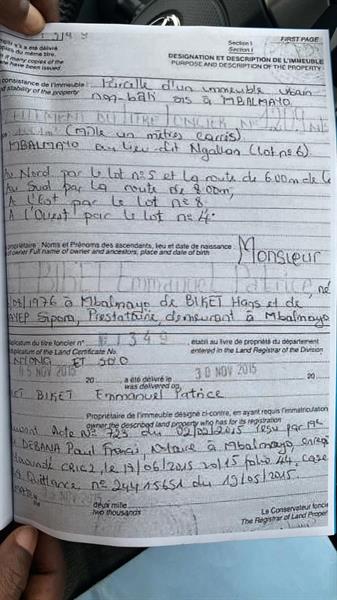 1349
FIRST PAGE
Section I
Section I
s'il a été délivré DESIGNATION ET DESCRIPTION DE L'IMMEUBLE
copies du même titre. PURPOSE AND DESCRIPTION OF THE PROPERTY
if many copies of the
have been issued.
consistance de l'immeuble Parcelle d'un immeuble urbain
and stability of the property non-bâti sis à MBALMAYO
(Mille un mètres carrés).
MBALMAYO au lieu dit Ngallan (lot n°6).
Au Nord par le lot n°5 et la route de 6.00m de
Au Sud par la route de 8.00m,
A l'Est par le lot n°8.
A l'Ouest par le lot n°4.
propriétaire : Noms et Prénoms des ascendants, lieu et date de naissance : Monsieur
of owner Full name of owner and ancestors, place and date of birth
BIKET Emmanuel Patrice, né
1976 à Mbalmayo de BIKET Hans et de
Prestataire, demeurant à Mbalmayo
Duplicatum du titre foncier n° 1349 établi au livre de propriété du département
Duplicatum of the Land Certificate No. entered in the Land Registrar of the Division
NYONG ET SO'O
05 NOV 2015 20 a été délivré le 30 NOV 2015 20
was delivered on
BIKET Emmanuel Patrice
Propriétaire de l'immeuble désigné ci-contre, en ayant requis l'immatriculation
owner the described land property who has for its registration
suivant Acte N° 723 du 02/02/2015 reçu par Me
DEBANA Paul Notaire à Mbalmayo,
le 17/06/2015 folio 44 case
Quittance n° 24415651 du 19/05/2015.
NOV 2015
deux mille
two thousands
Le Conservateur fonc
The Registrar of Land Proper